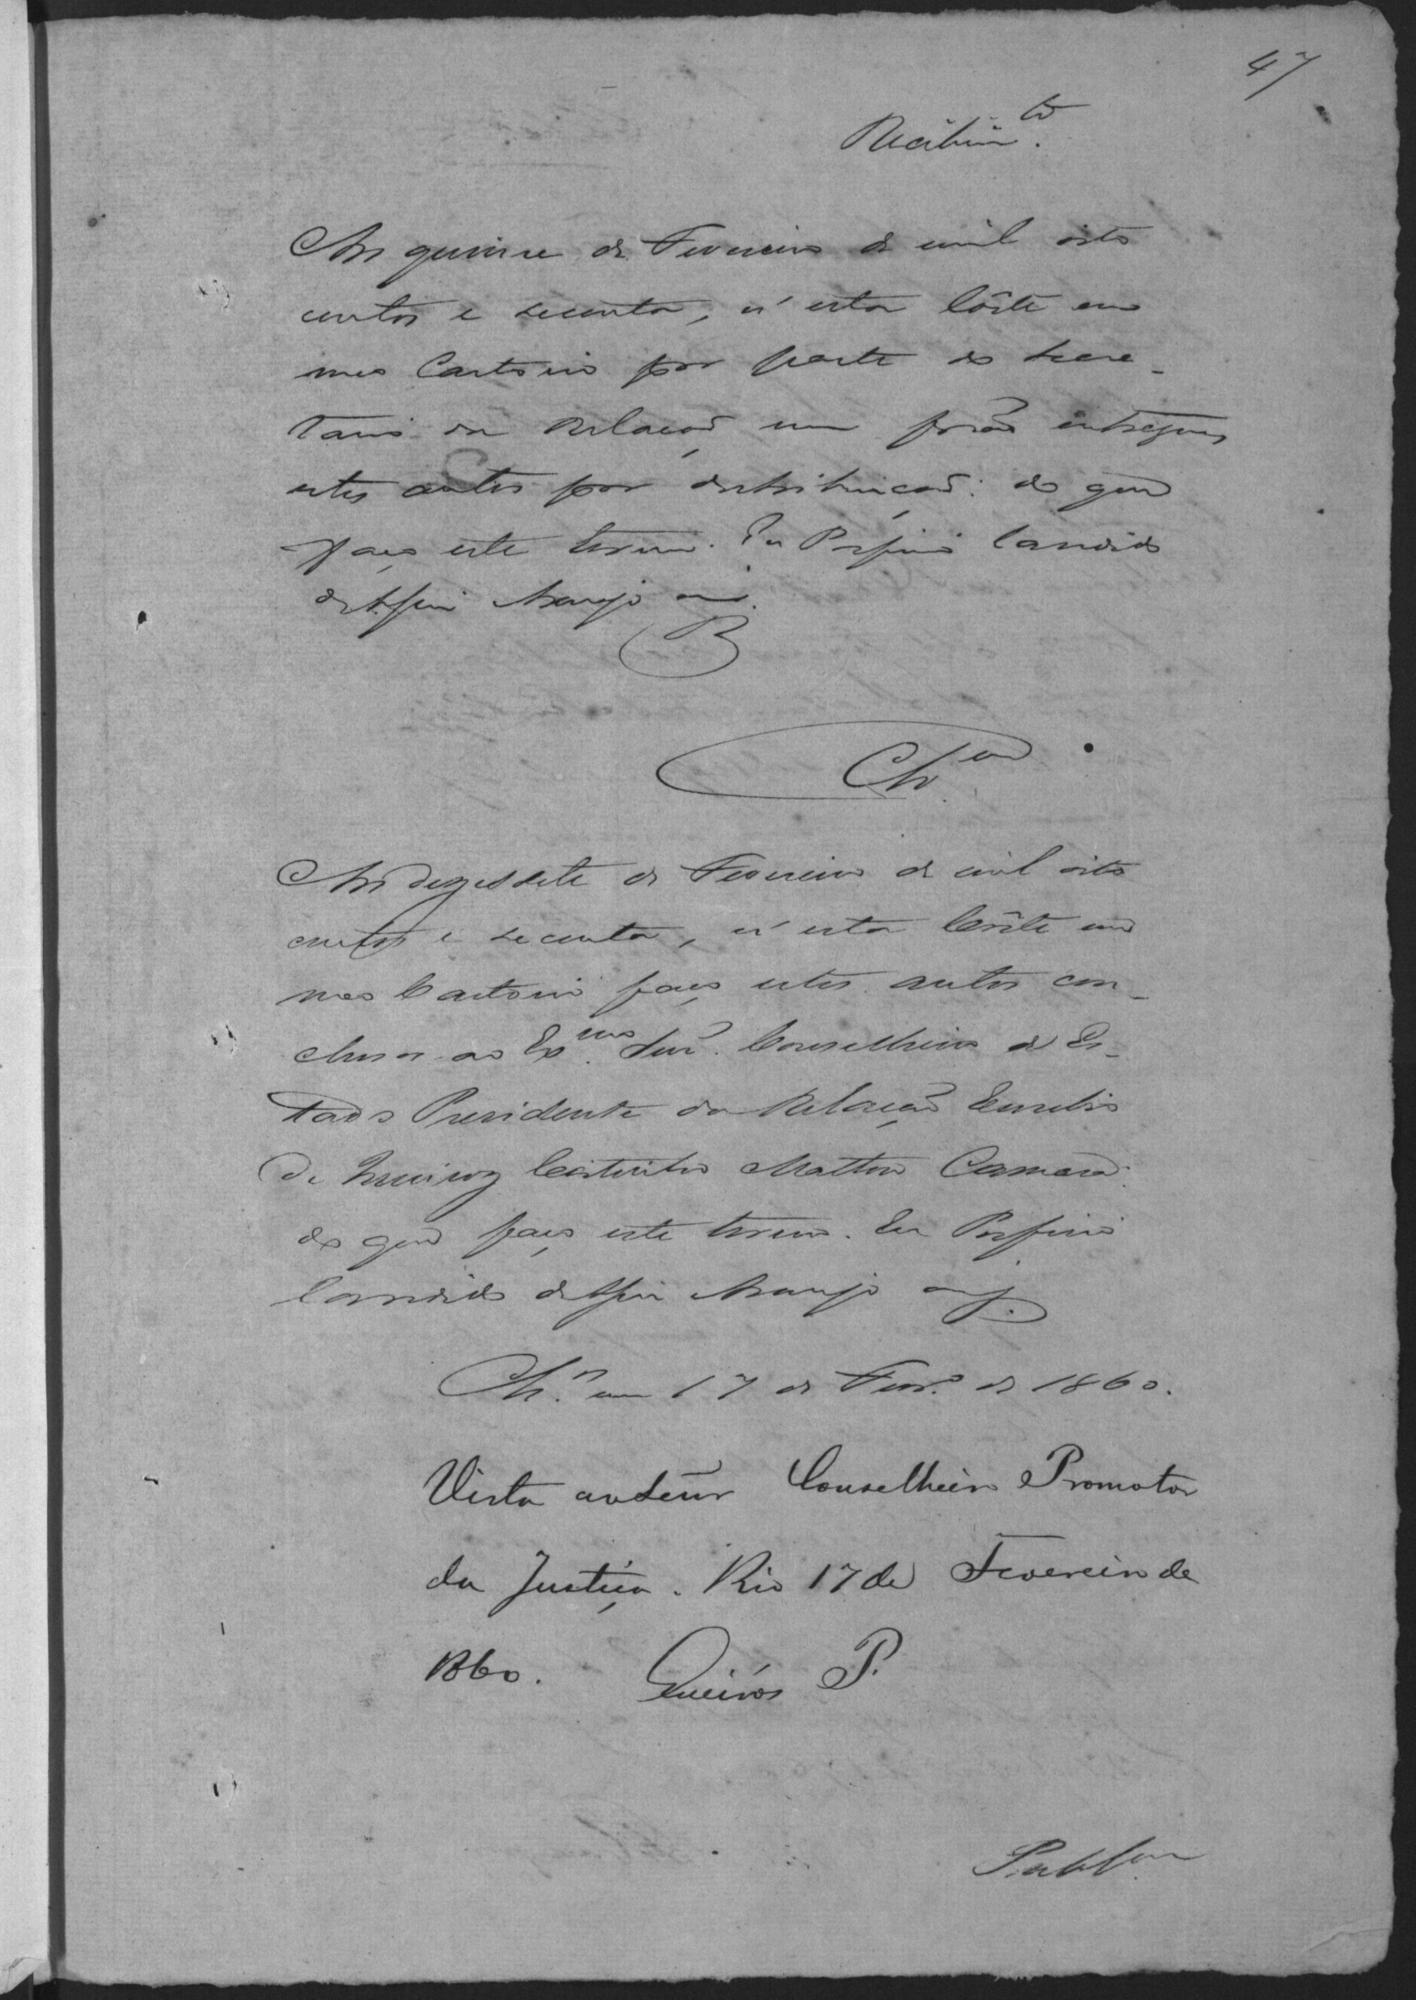 47
Recebim.to
Aos quinse de Fevereiro de mil oito
centos e secenta, n'esta Côrte em
meo Cartorio por parte do Secre-
tario da Relação me forão entregues
estes autos por destribuição: do que
faço este termo. Eu Porfirio Candido
de Assis Araujo
Cls.am
Aos dezessete de Fevereiro de mil oito
centos e secenta, n'esta Côrte em
meo Cartorio faço estes autos con-
clusos ao Ex.mo Snr. Conselheiro de Es-
tado Presidente da Relação Euzebio
de Queiroz Coitinho Mattoso Camara:
do que faço este termo. Eu Porfirio
Candido de Assis Araujo
Cls. em 17 de Fevr.o de 1860.
Vista ao Senr Conselheiro Promotor
da Justiça. Rio 17 de Fevereiro de
1860. Queirós P.